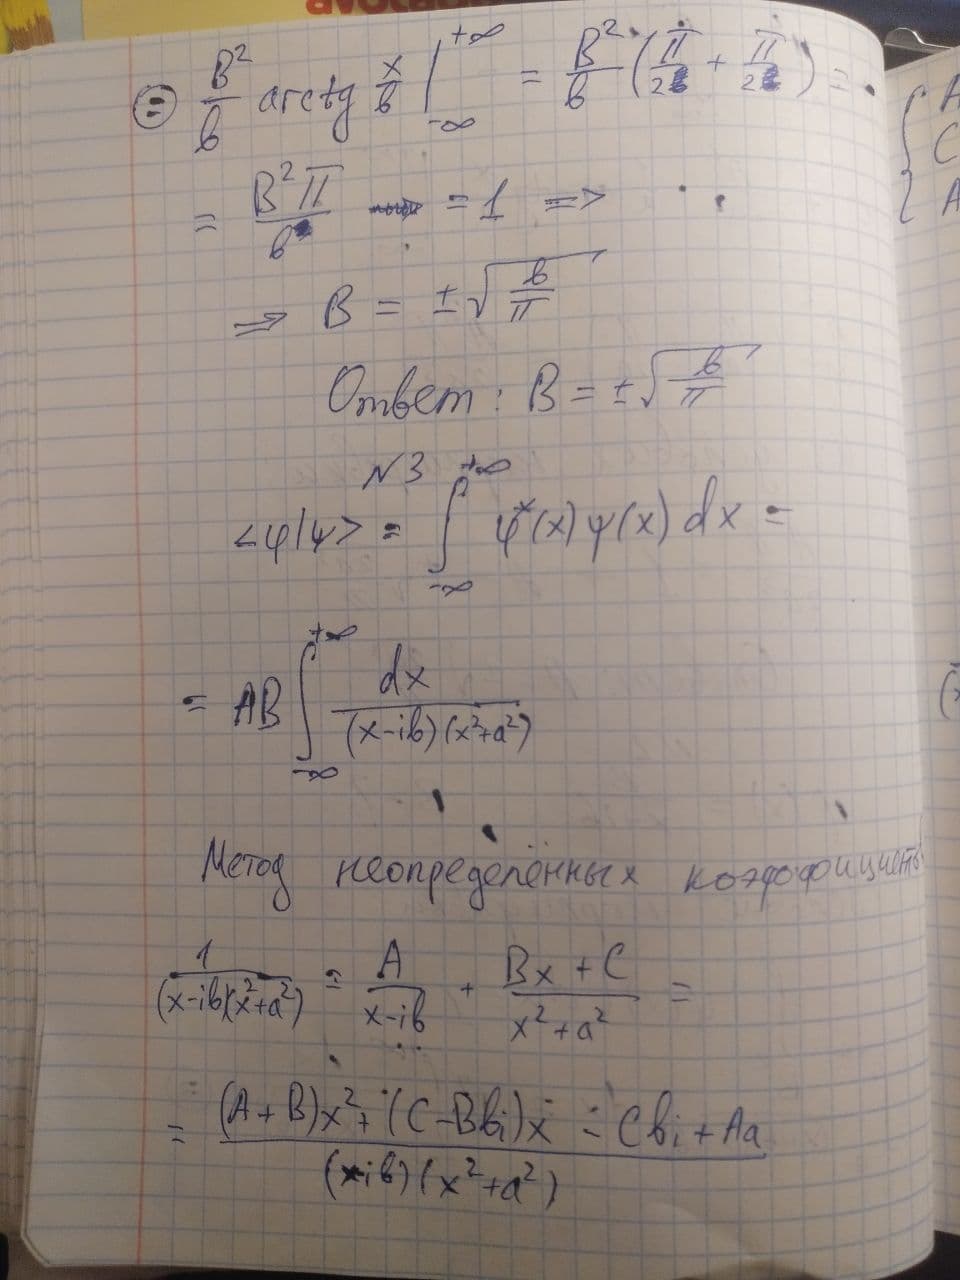 = B²/b arctg x/b |_{-∞}^{+∞} = B²/b (π/2 + π/2) =
= B²π/b = 1 =>
=> B = ±√(b/π)
Ответ: B = ±√(b/π)
N3
<φ|ψ> = ∫_{-∞}^{+∞} φ*(x) ψ(x) dx =
= AB ∫_{-∞}^{+∞} dx/((x-ib)(x²+a²))
Метод неопределённых коэффициентов
1/((x-ib)(x²+a²)) = A/(x-ib) + (Bx + C)/(x²+a²) =
= ((A+B)x² + (C-Bbi)x - Cbi + Aa)/((x-ib)(x²+a²))
{ A
C
A